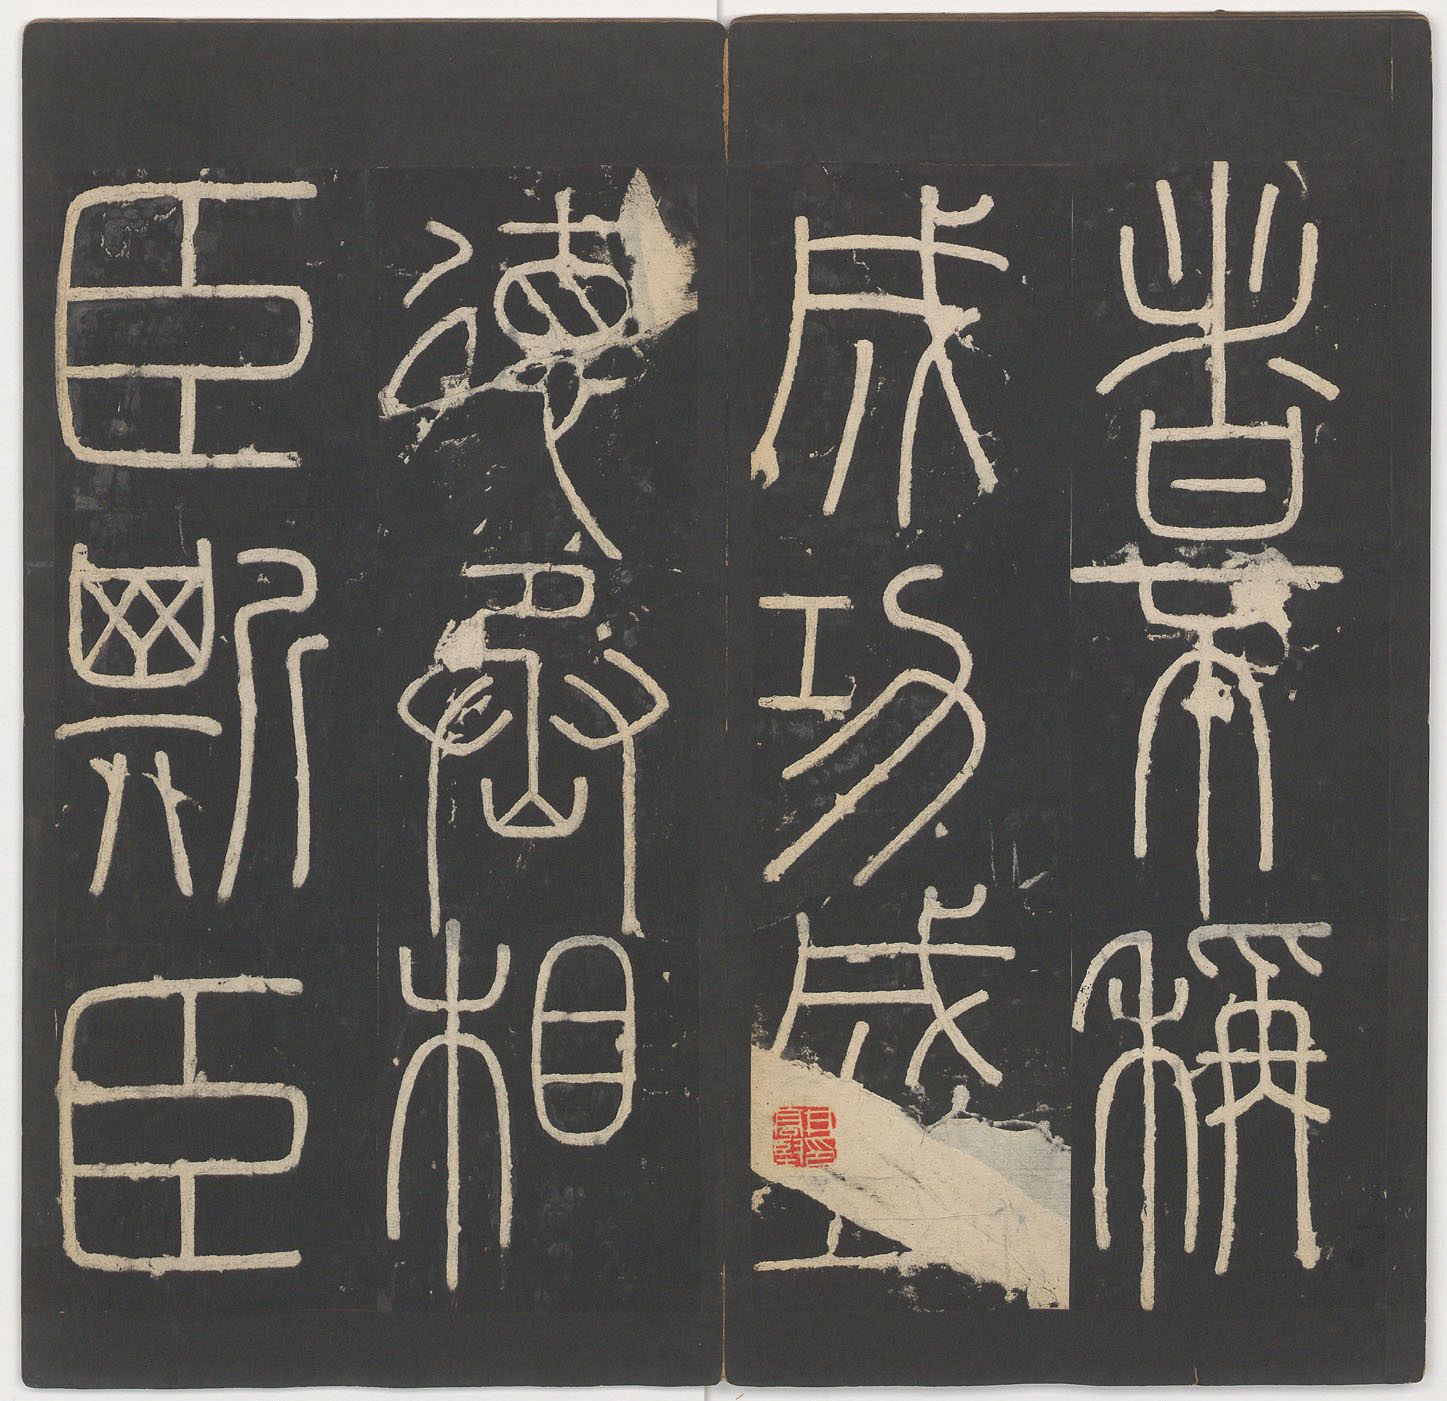 者不稱
成功盛
德丞相
臣斯臣